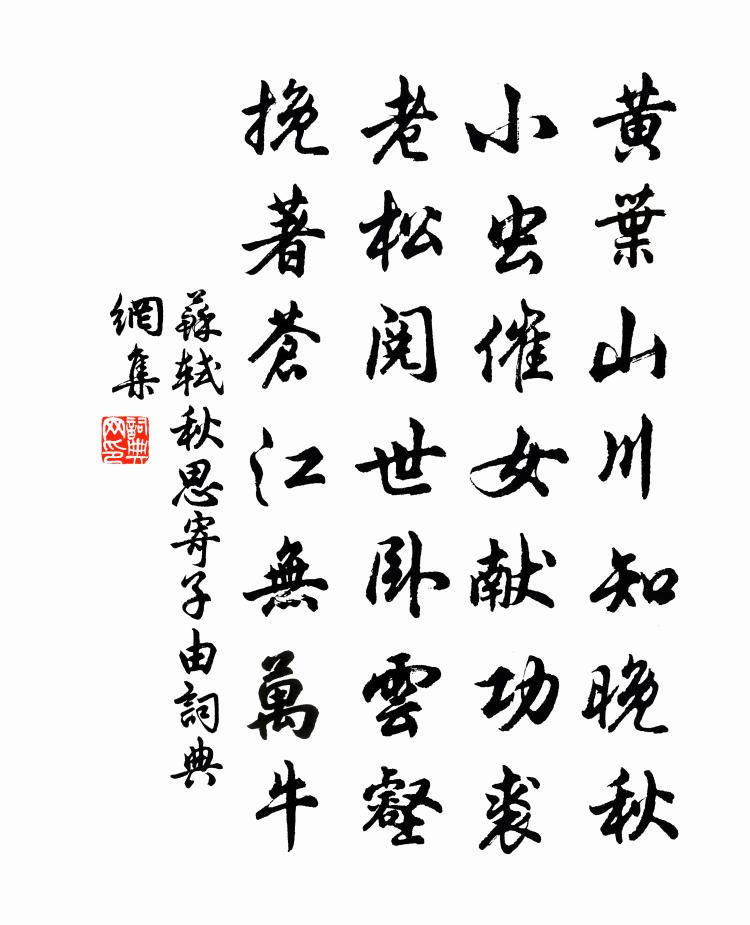 黄葉山川知晚秋
小虫催女献功裘
老松閱世卧雲壑
挽著蒼江無萬牛
蘇軾秋思寄子由詞典
網集
詞典
网印